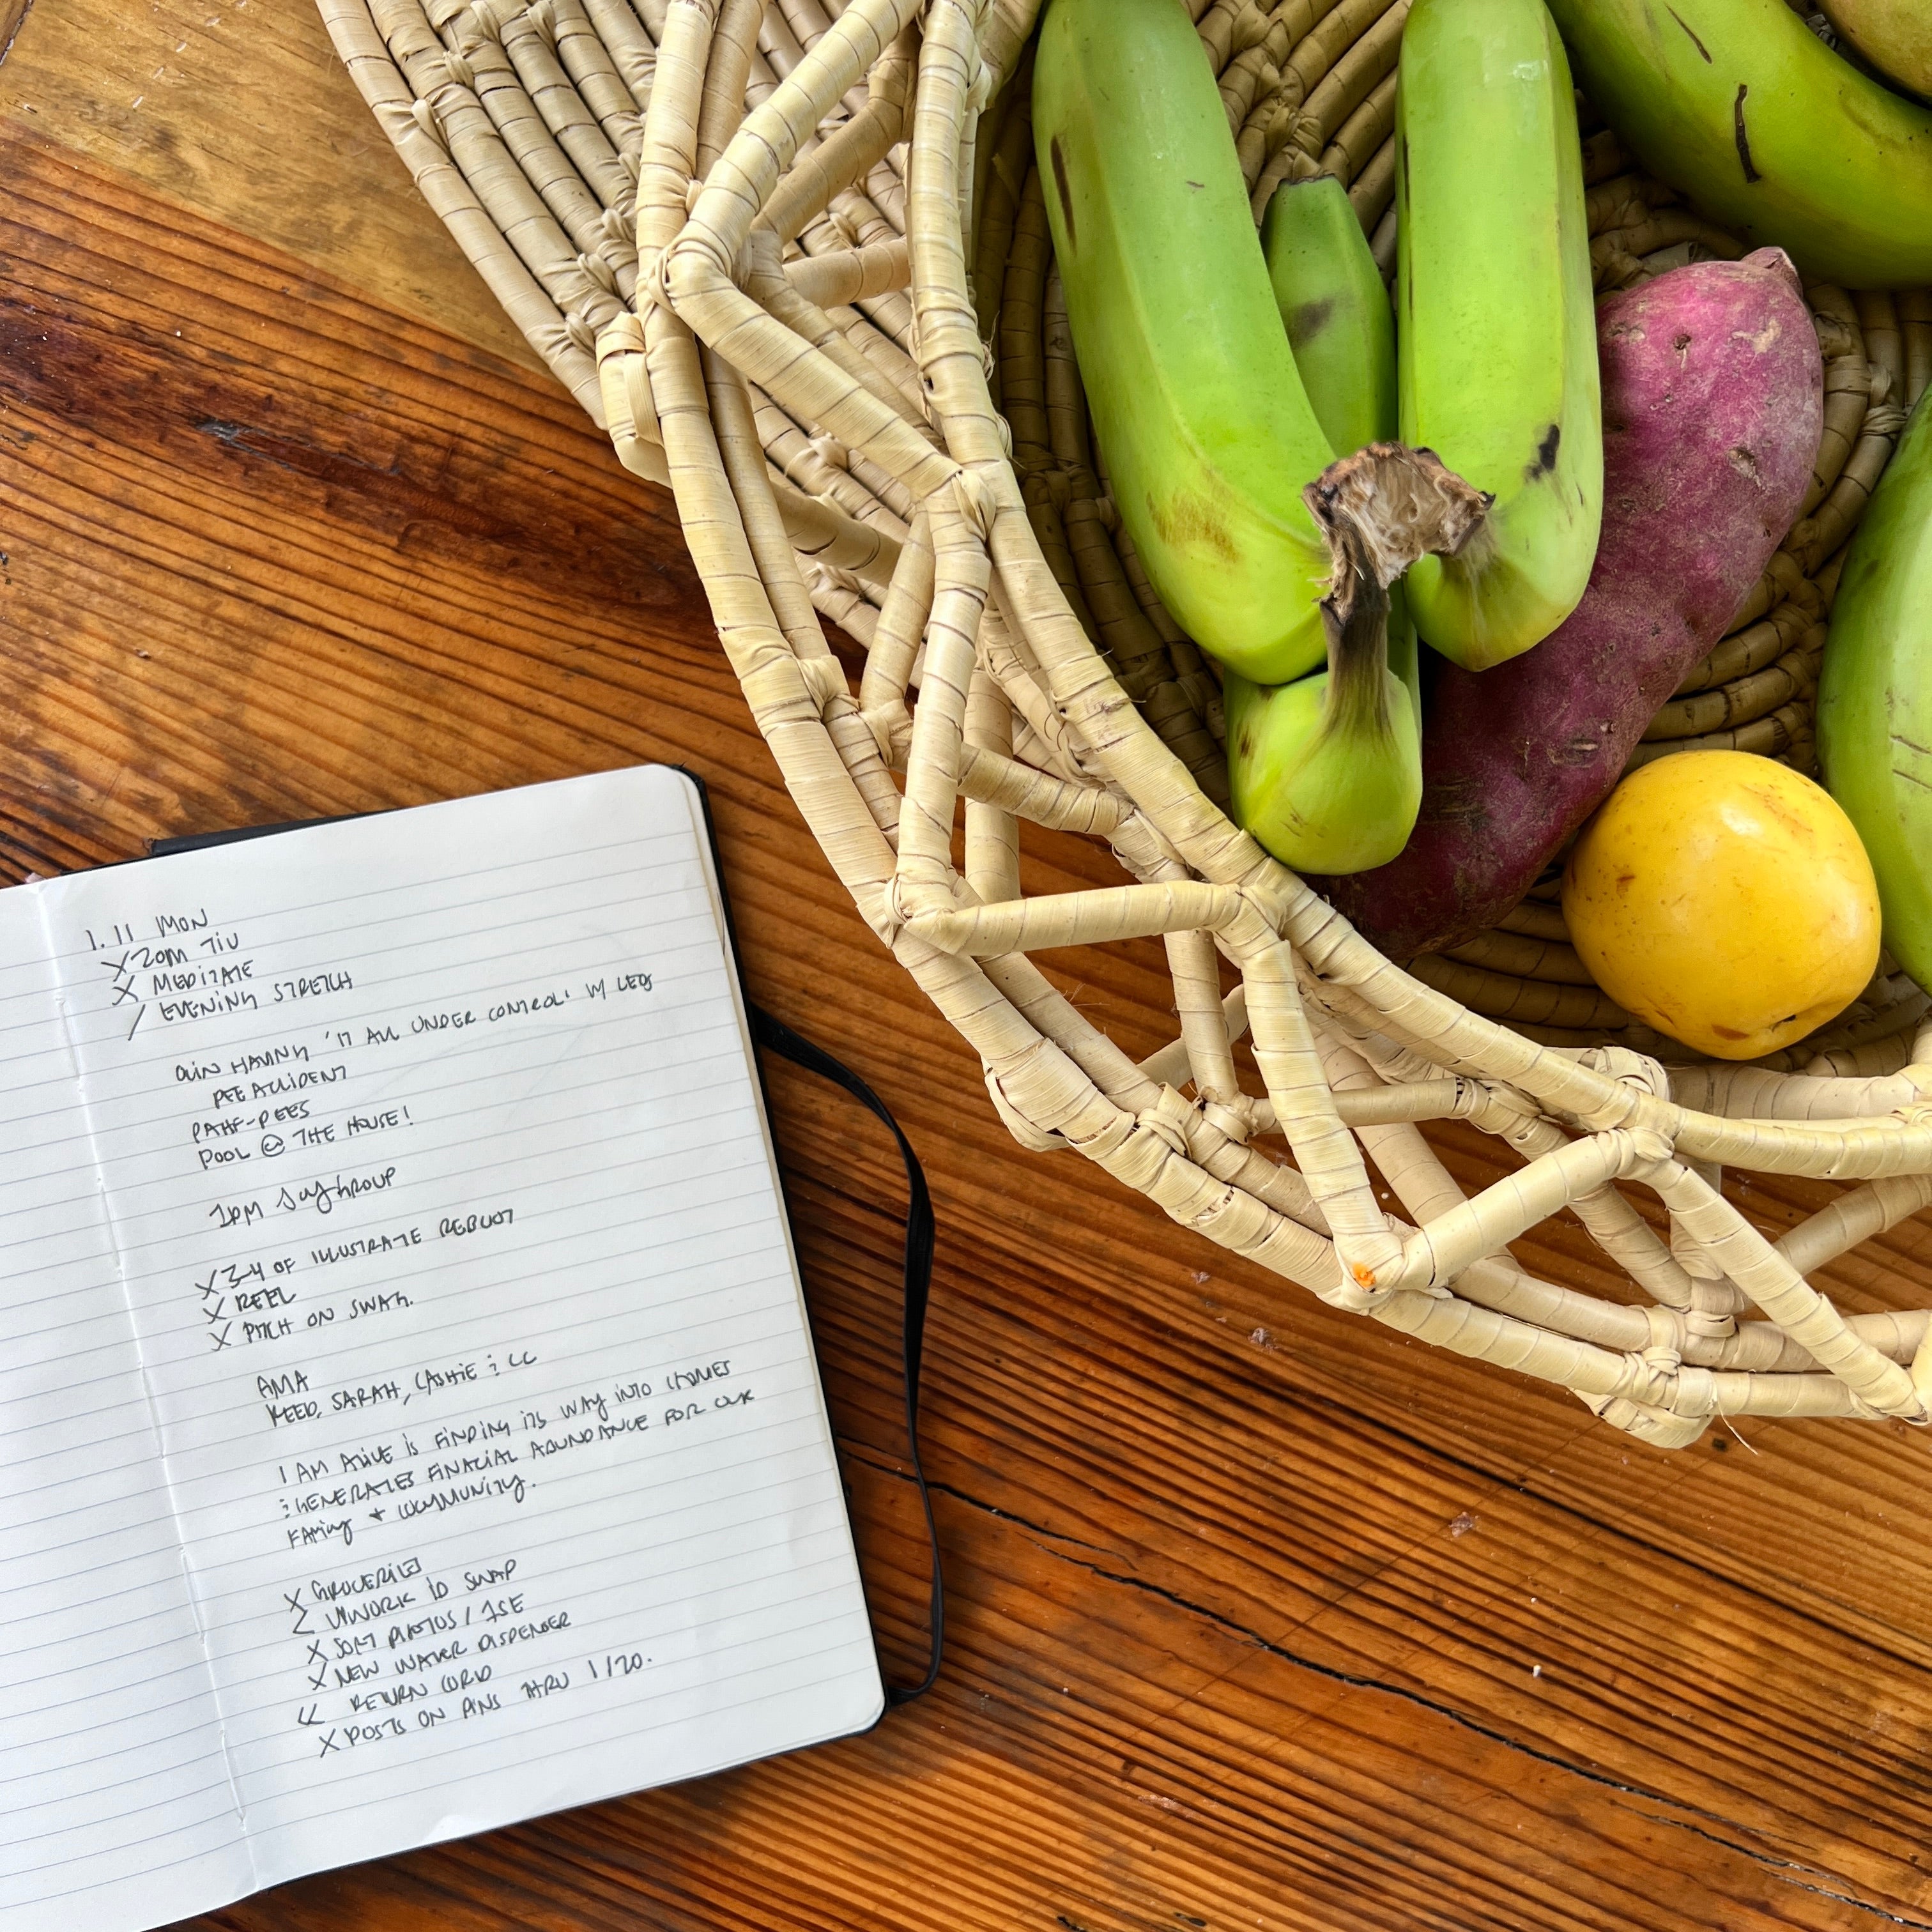 1.11 MON
X 20M 
X MEDITATE
/ EVENING STRETCH
HAVING 'IT ALL UNDER CONTROL' W/ LEGS
PEE ACCIDENT
POOL @ THE HOUSE!
X 3-4 OF ILLUSTRATE REBOOT
X REEL
X PITCH ON SWAG.
AMA
REED, SARAH, CASHIE & CC
I AM ALIVE IS FINDING ITS WAY INTO HOMES
& GENERATES FINACIAL ABUNDANCE FOR OUR
FAMILY + COMMUNITY.
X GROCERIES
UNWORK ID SWAP
X SORT PHOTOS /
X NEW WATER DISPENSER
RETURN CORD
X POSTS ON PINS THRU 1/20.